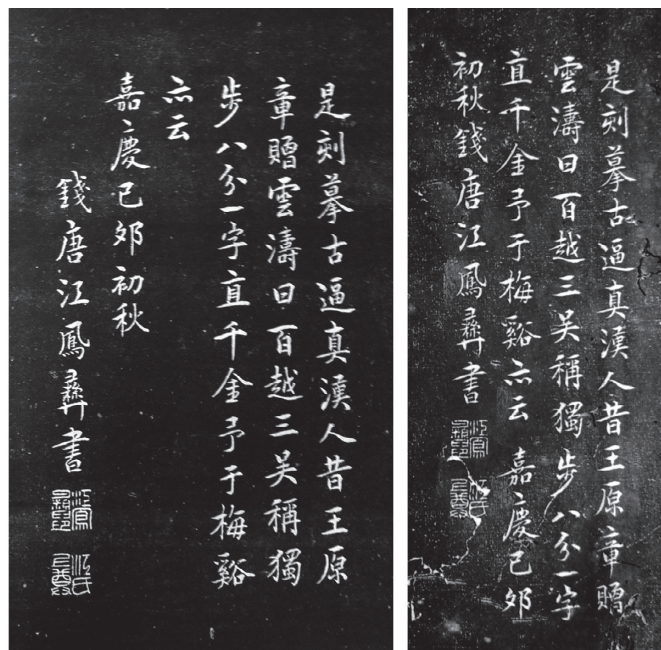 是刻摹古逼真漢人昔王原
章贈雲濤曰百越三吴稱獨
步八分一字直千金予于梅谿
亦云
嘉慶己卯初秋
錢唐江鳳彝書
江鳳彝印
是刻摹古逼真漢人昔王原章贈
雲濤曰百越三吴稱獨步八分一字
直千金予于梅谿亦云 嘉慶己卯
初秋錢唐江鳳彝書
江鳳彝印